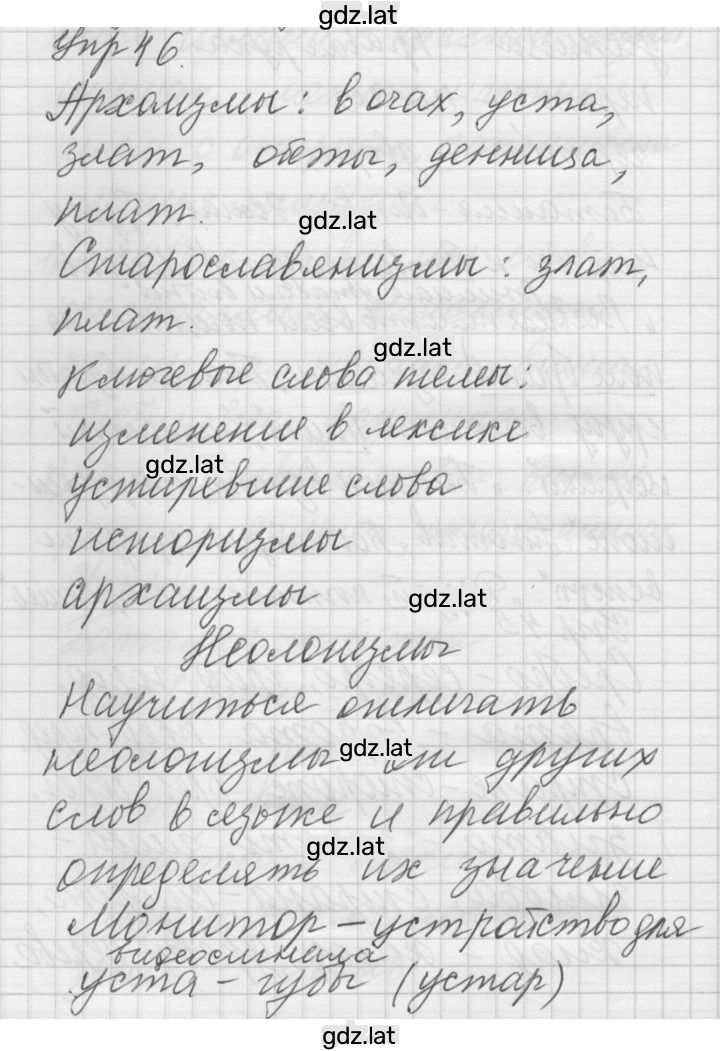 gdz.lat
Упр 46.
Архаизмы: в очах, уста,
злат, обеты, денница,
плат.
gdz.lat
Старославянизмы: злат,
плат.
gdz.lat
Ключевые слова темы:
изменение в лексике
gdz.lat
устаревшие слова
историзмы
архаизмы
gdz.lat
Неологизмы
Научиться отличать
неологизмы от других
gdz.lat
слов в языке и правильно
gdz.lat
определять их значение
Монитор – устройство для
видеосигнала
уста – губы (устар)
gdz.lat